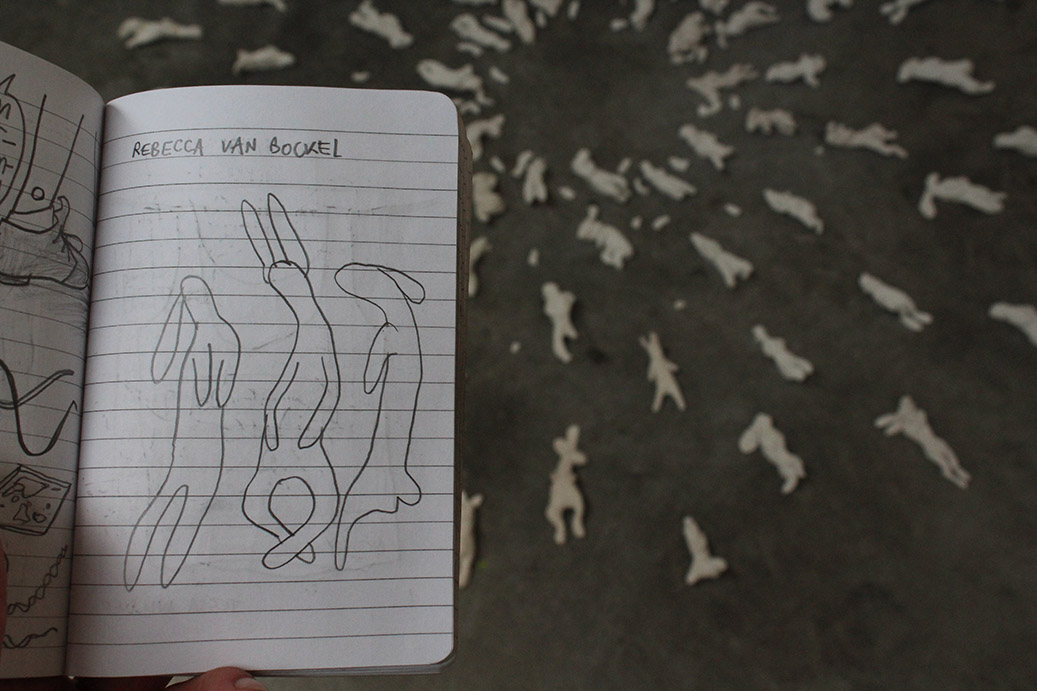 REBECCA VAN BOCKEL